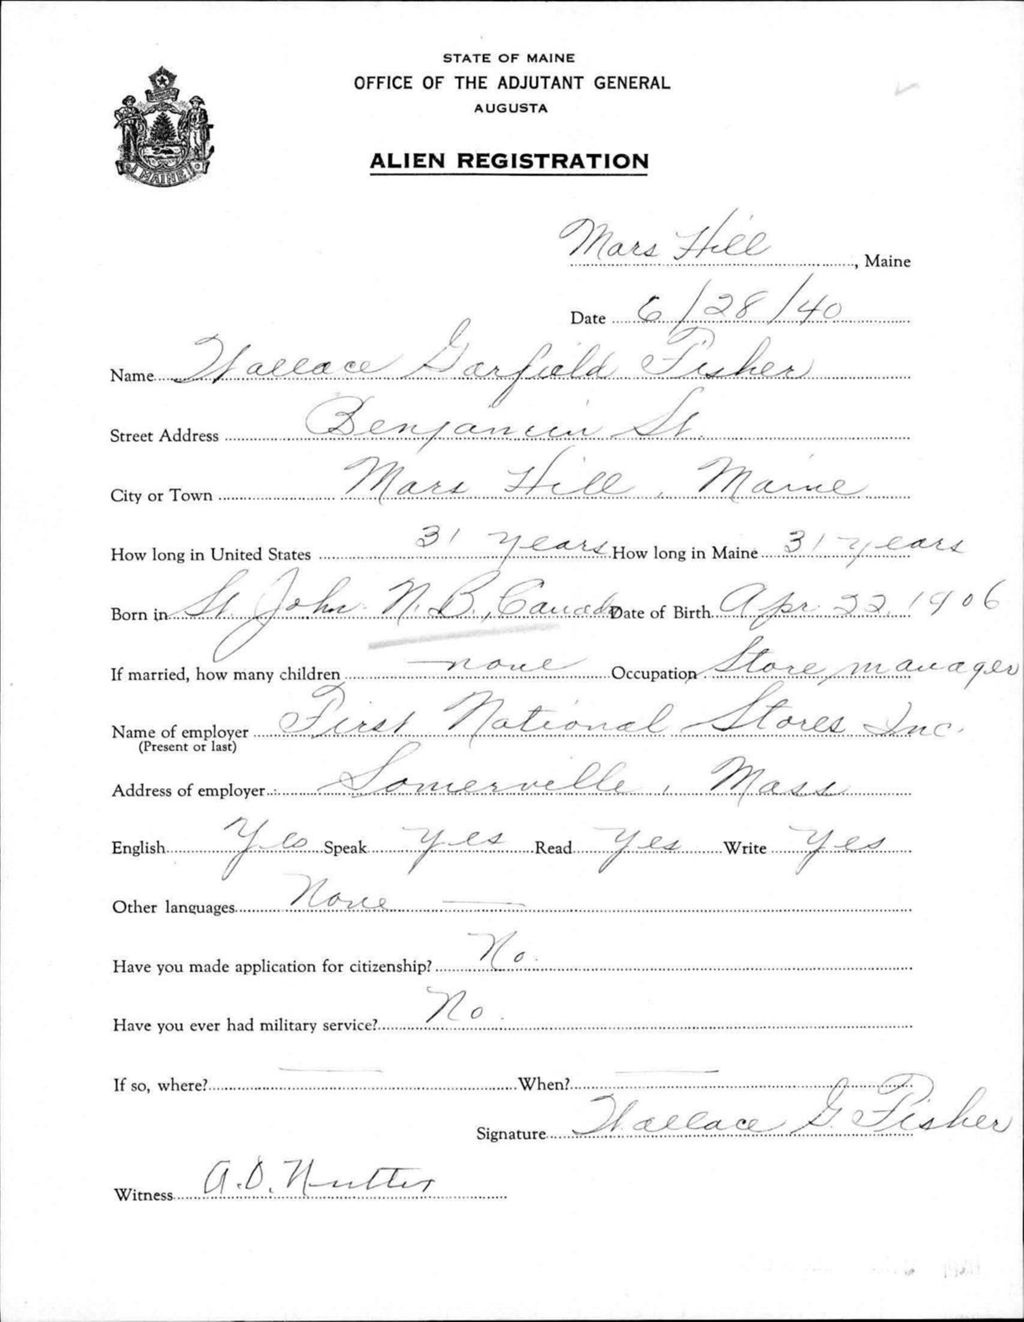 STATE OF MAINE
OFFICE OF THE ADJUTANT GENERAL
AUGUSTA
ALIEN REGISTRATION
MAINE
Mars Hill, Maine
Date 6/28/40
Name Wallace Garfield Fisher
Street Address Benjamin St.
City or Town Mars Hill, Maine
How long in United States 31 years How long in Maine 31 years
Born in St. John N.B., Canada Date of Birth Apr. 22, 1906
If married, how many children none Occupation Store manager
Name of employer First National Stores Inc.
(Present or last)
Address of employer Somerville, Mass
English Yes Speak Yes Read Yes Write Yes
Other languages None
Have you made application for citizenship? No.
Have you ever had military service? No.
If so, where? — When? —
Signature Wallace G. Fisher
Witness A.D. Nutter